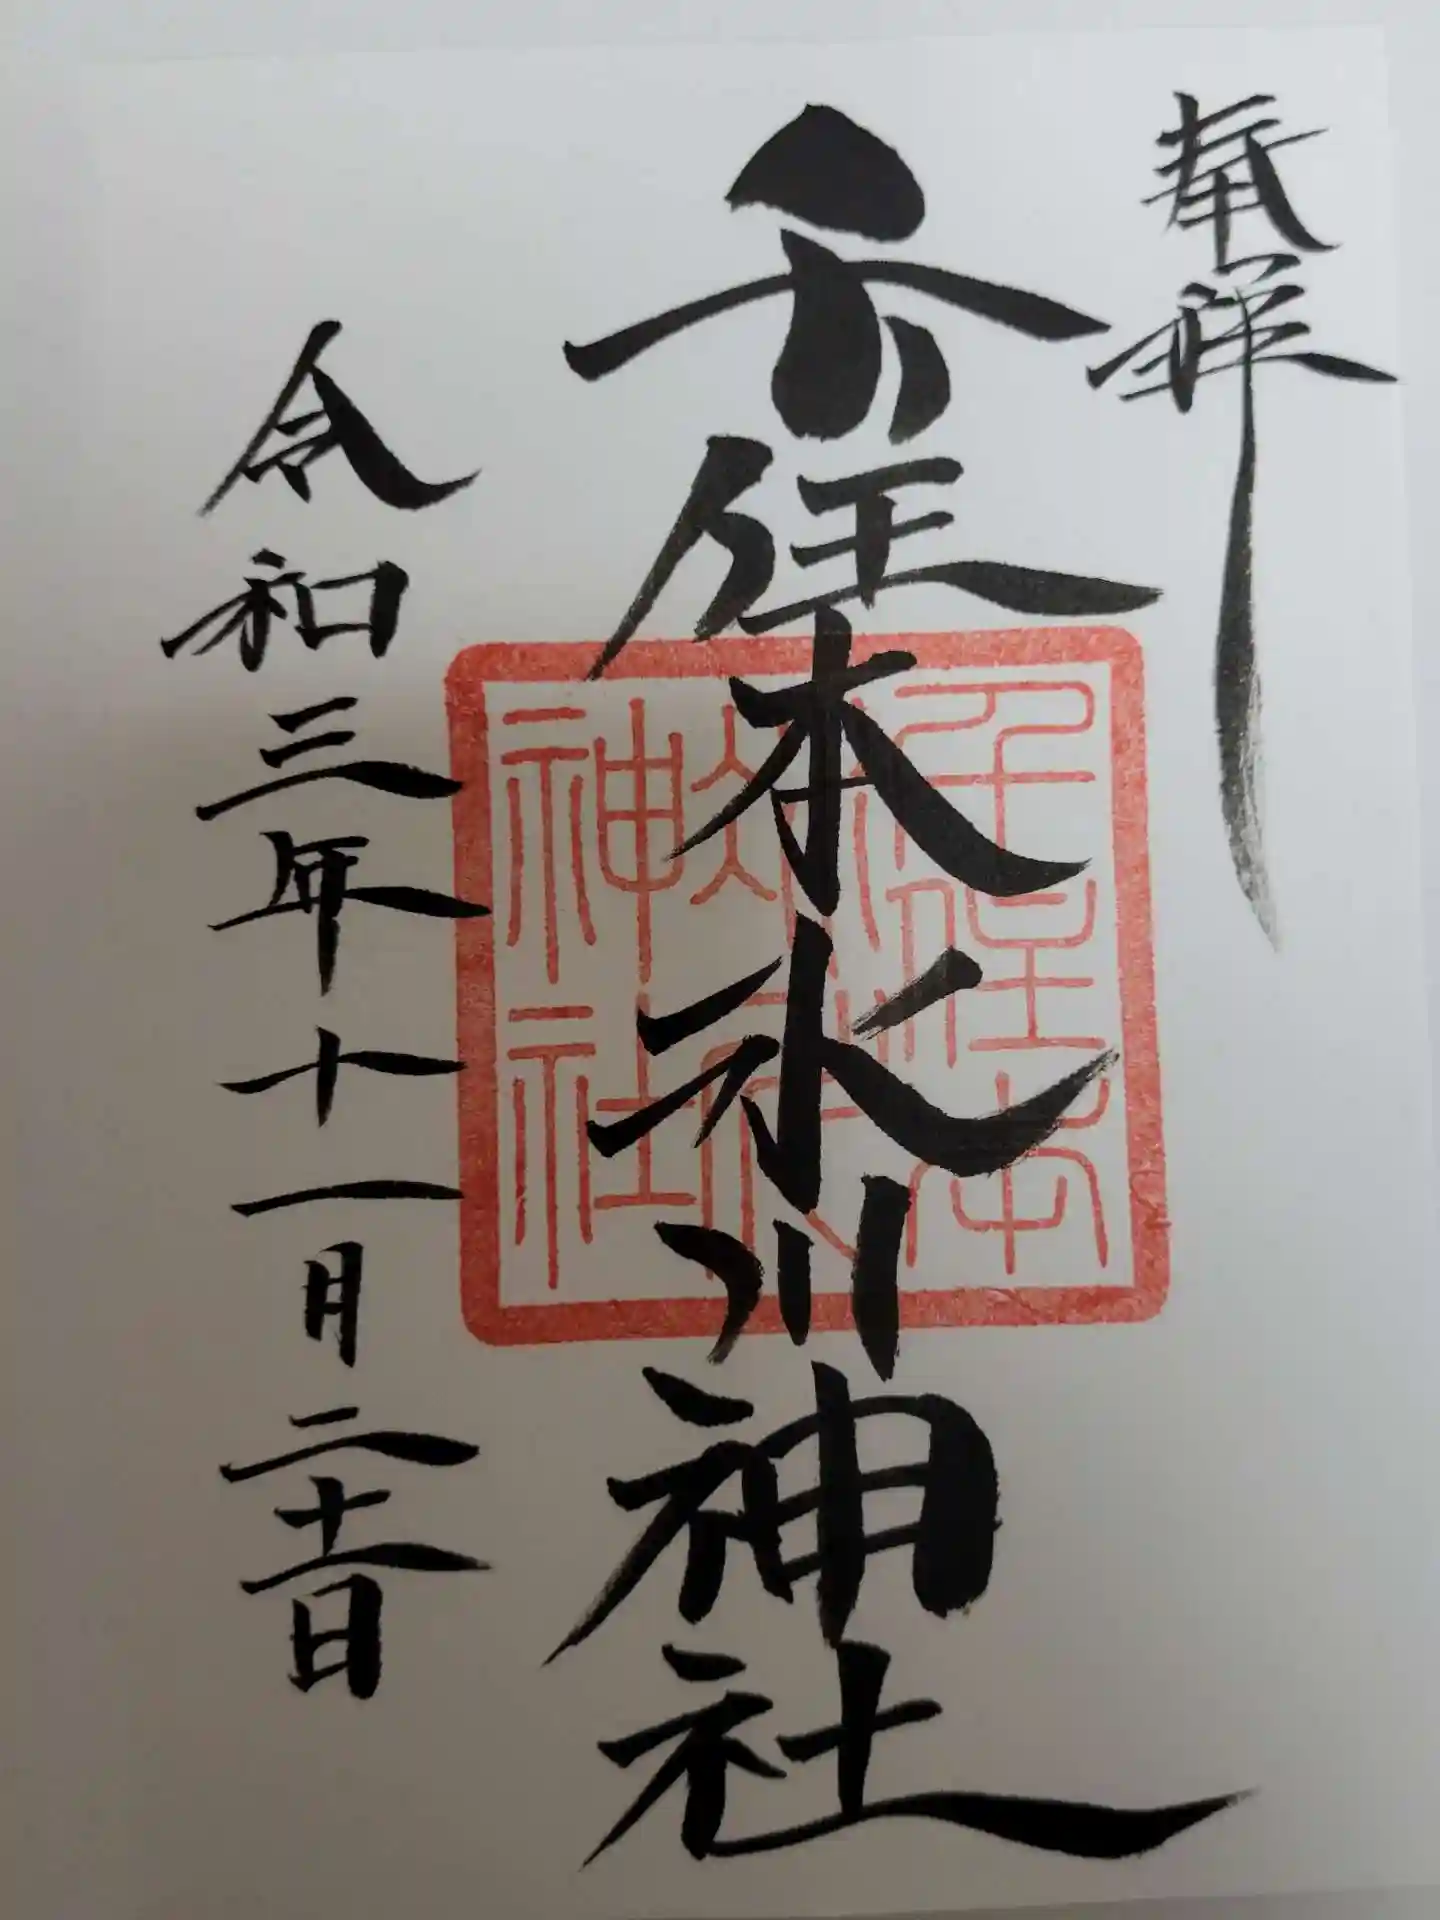 奉拝
千住本氷川神社
千住本
氷川
神社
令和三年十一月二十一日